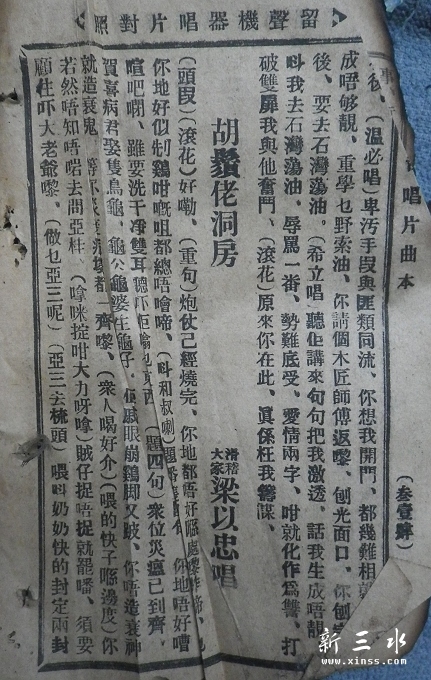 留聲機器唱片對照
唱片曲本
(叁壹肆)
(溫必唱)卑汚手段與匪類同流、你想我開門、都幾難相
成唔够靚、重學乜野索油、你請個木匠師傅返嚟、刨光面口、你刨
後、要去石灣蕩油。(希立唱 聽佢講來句句把我激透。話我生成唔靚
呌我去石灣蕩油、辱罵一番、勢難底受、愛情兩字、咁就化作爲讐、打
破雙扉我與他奮鬥、(滾花)原來你在此、眞係枉我籌謀、
胡鬚佬洞房
滑稽大家 梁以忠唱
(頭段)(滾花)好嘞、(重句)炮仗已經燒完、你地都唔好
你地好似制鷄咁嘅咀都總唔噲啼、(呌和叔喇) 你地唔好嘈
喧吧啊、雖要洗干净雙耳聽吓 (題四句)衆位災瘟已到齊、
賀喜病君娶隻烏龜、龜公龜婆生龜子、 眼崩鷄脚又跛、你唔造衰神
就造衰鬼、 一齊嚟、(衆人喝好介)(喂的快子喺邊度)你
若然唔知唔啱去問亞杜、(拿咪掟咁大力呀拿)賊仔捉唔捉就罷皤、須要
顧住吓大老爺嚟、(做乜亞三呢)(亞三去梳頭)喂呌奶奶快的封定兩封
新三水
www.xinss.com